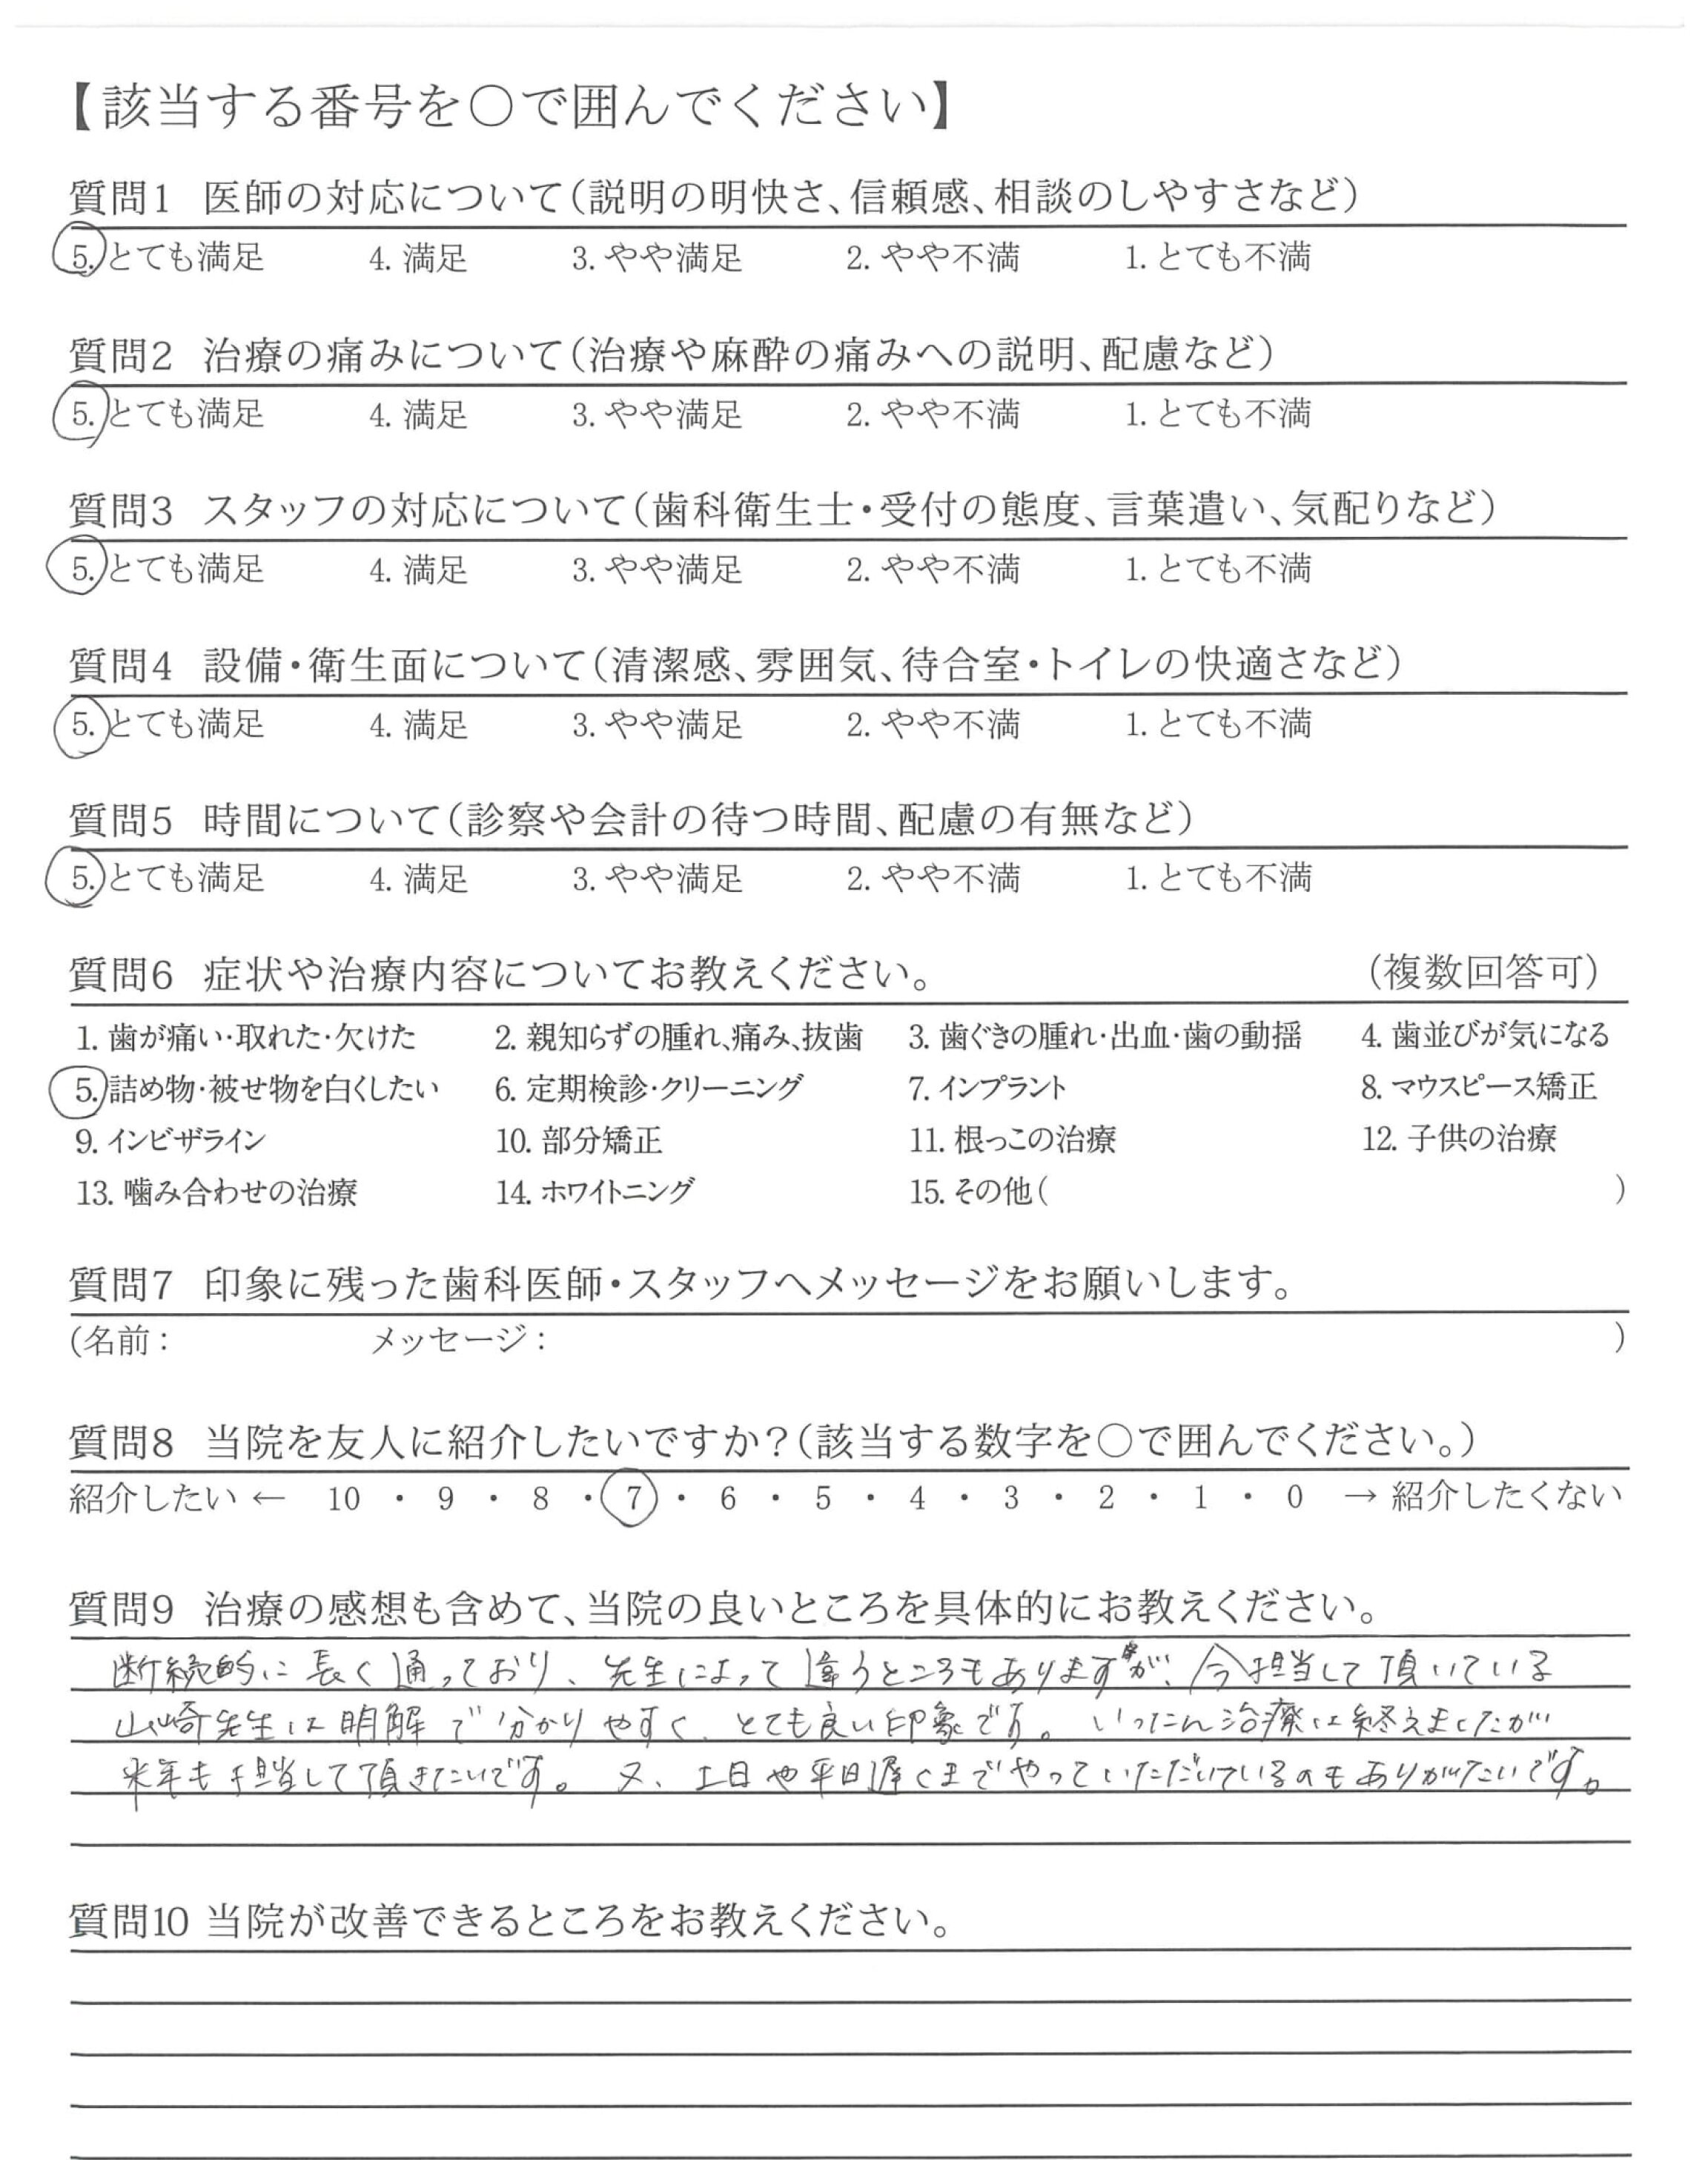 【該当する番号を○で囲んでください】
質問1 医師の対応について(説明の明快さ、信頼感、相談のしやすさなど)
5. とても満足 4. 満足 3. やや満足 2. やや不満 1. とても不満
質問2 治療の痛みについて(治療や麻酔の痛みへの説明、配慮など)
5. とても満足 4. 満足 3. やや満足 2. やや不満 1. とても不満
質問3 スタッフの対応について(歯科衛生士・受付の態度、言葉遣い、気配りなど)
5. とても満足 4. 満足 3. やや満足 2. やや不満 1. とても不満
質問4 設備・衛生面について(清潔感、雰囲気、待合室・トイレの快適さなど)
5. とても満足 4. 満足 3. やや満足 2. やや不満 1. とても不満
質問5 時間について(診察や会計の待つ時間、配慮の有無など)
5. とても満足 4. 満足 3. やや満足 2. やや不満 1. とても不満
質問6 症状や治療内容についてお教えください。 (複数回答可)
1. 歯が痛い・取れた・欠けた 2. 親知らずの腫れ、痛み、抜歯 3. 歯ぐきの腫れ・出血・歯の動揺 4. 歯並びが気になる
5. 詰め物・被せ物を白くしたい 6. 定期検診・クリーニング 7. インプラント 8. マウスピース矯正
9. インビザライン 10. 部分矯正 11. 根っこの治療 12. 子供の治療
13. 噛み合わせの治療 14. ホワイトニング 15. その他( )
質問7 印象に残った歯科医師・スタッフへメッセージをお願いします。
(名前: メッセージ: )
質問8 当院を友人に紹介したいですか?(該当する数字を○で囲んでください。)
紹介したい ← 10 ・ 9 ・ 8 ・ 7 ・ 6 ・ 5 ・ 4 ・ 3 ・ 2 ・ 1 ・ 0 → 紹介したくない
質問9 治療の感想も含めて、当院の良いところを具体的にお教えください。
断続的に長く通っており、先生によって違うところもありますが、今担当して頂いている
山崎先生は明解で分かりやすく、とても良い印象です。いったん治療は終えましたが
来年も担当して頂きたいです。又、土日や平日遅くまでやっていただいているのもありがたいです。
質問10 当院が改善できるところをお教えください。